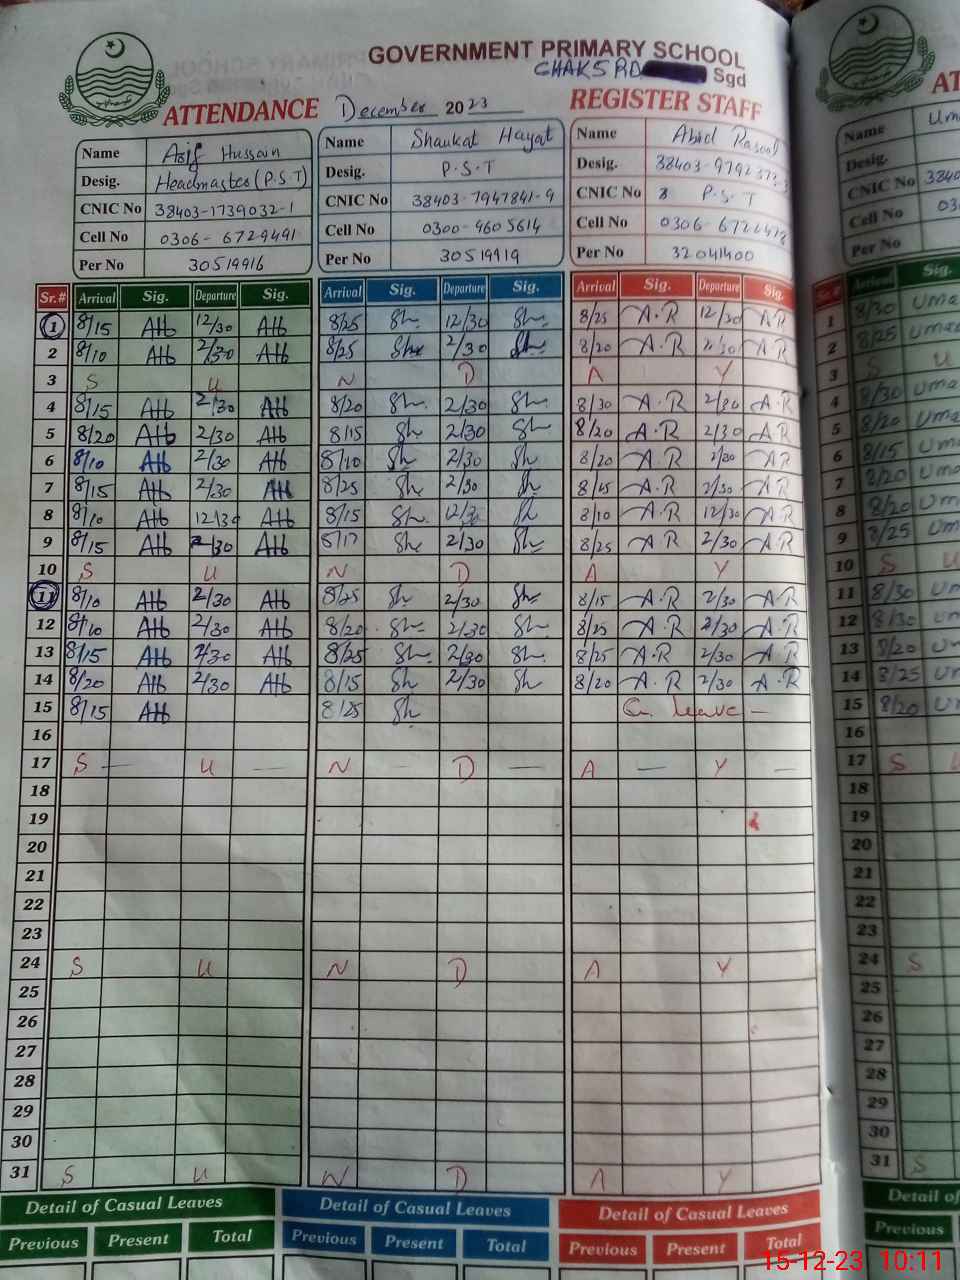 GOVERNMENT PRIMARY SCHOOL
CHAK 5 RD Sgd
ATTENDANCE December 2023 REGISTER STAFF
Name Asif Hussain Name Shaukat Hayat Name Abid Rasool
Desig. Headmaster (P.S.T) Desig. P.S.T Desig. 38403-9792373-3
CNIC No 38403-1739032-1 CNIC No 38403-7947841-9 CNIC No 8 P.S.T
Cell No 0306-6729491 Cell No 0300-9605614 Cell No 0306-
Per No 30519916 Per No 30519919 Per No 32041400
Sr.# Arrival Sig. Departure Sig. Arrival Sig. Departure Sig. Arrival Sig. Departure Sig.
1 8/15 AH 12/30 AH 8/25 Sh 12/30 Sh 8/25 A.R 12/30 AR
2 8/10 AH 2/30 AH 8/25 Sh 2/30 Sh 8/20 A.R 2/30 AR
3 S U N D A Y
4 8/15 AH 2/30 AH 8/20 Sh 2/30 Sh 8/30 A.R 2/30 A.R
5 8/20 AH 2/30 AH 8/15 Sh 2/30 Sh 8/20 A.R 2/30 AR
6 8/10 AH 2/30 AH 8/10 Sh 2/30 Sh 8/20 A.R 2/30 AR
7 8/15 AH 2/30 AH 8/25 Sh 2/30 Sh 8/15 A.R 2/30 AR
8 8/10 AH 12/30 AH 8/15 Sh 12/30 Sh 8/10 A.R 12/30 AR
9 8/15 AH 2/30 AH 8/17 Sh 2/30 Sh 8/25 A.R 2/30 AR
10 S U N D A Y
11 8/10 AH 2/30 AH 8/25 Sh 2/30 Sh 8/15 A.R 2/30 A.R
12 8/10 AH 2/30 AH 8/20 Sh 2/30 Sh 8/25 A.R 2/30 A.R
13 8/15 AH 2/30 AH 8/25 Sh 2/30 Sh 8/25 A.R 2/30 A.R
14 8/20 AH 2/30 AH 8/15 Sh 2/30 Sh 8/20 A.R 2/30 A.R
15 8/15 AH 8/25 Sh leave -
16
17 S - U - N - D - A - Y -
18
19
20
21
22
23
24 S U N D A Y
25
26
27
28
29
30
31 S U N D A Y
Detail of Casual Leaves Detail of Casual Leaves Detail of Casual Leaves
Previous Present Total Previous Present Total Previous Present Total
AT
Name Um
Desig.
CNIC No 3840
Cell No 03
Per No
Sr.# Arrival Sig.
1 8/30 Uma
2 8/25 Uma
3 S U
4 8/30 Uma
5 8/20 Uma
6 8/15 Uma
7 8/20 Uma
8 8/20 Um
9 8/25 Um
10 S U
11 8/30 Um
12 8/30 Um
13 8/20 Um
14 8/25 Um
15 8/20 Um
16
17 S U
18
19
20
21
22
23
24 S
25
26
27
28
29
30
31 S
Detail of
Previous
15-12-23 10:11